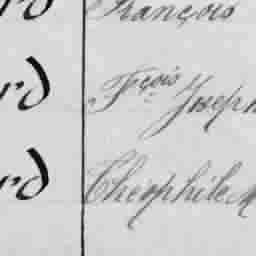 rd François
rd Fçois Joseph
rd Théophile M